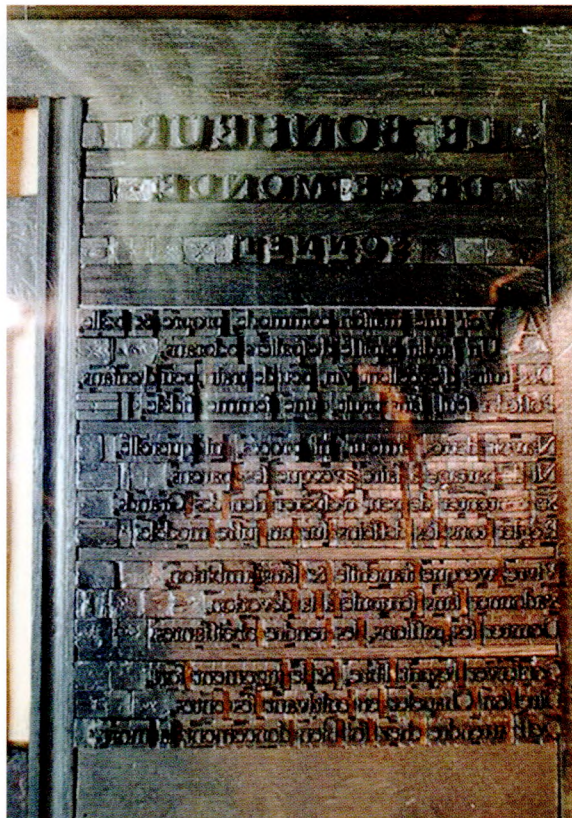 LE BONHEUR
DE CE MONDE
SONNET
Avoir une maison commode, propre & belle,
Un jardin tapissé d'espaliers odorans,
Des fruits, d'excellent vin, peu de train, peu d'enfans,
Posseder seul, sans bruit, une femme fidele.
N'avoir dettes, amour, ni procés, ni querelle,
Ni de partage à faire avecque ses parens,
Se contenter de peu, n'esperer rien des Grands,
Regler tous ses desseins sur un juste modele.
Vivre avecque franchise & sans ambition,
S'adonner sans scrupule à la devotion,
Domter ses passions, les rendre obeissantes.
Conserver l'esprit libre, & le jugement fort,
Dire son Chapelet en cultivant ses entes,
C'est attendre chez soi bien doucement la mort.